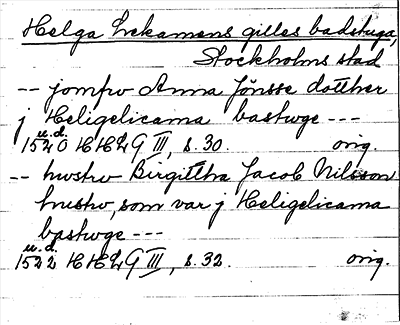 Helga Lekamens gilles badstuga,
Stockholms stad
-- jomfrw Anna Jönsse dotther
j Heligelicama bastwge ---
u.d.
1520 HHLG III, s. 30. orig.
-- hwstrw Birgittha Jacob Nilsson
hustrw, som var j Heligelicama
bastwge ---
u.d.
1522 HHLG III, s. 32. orig.